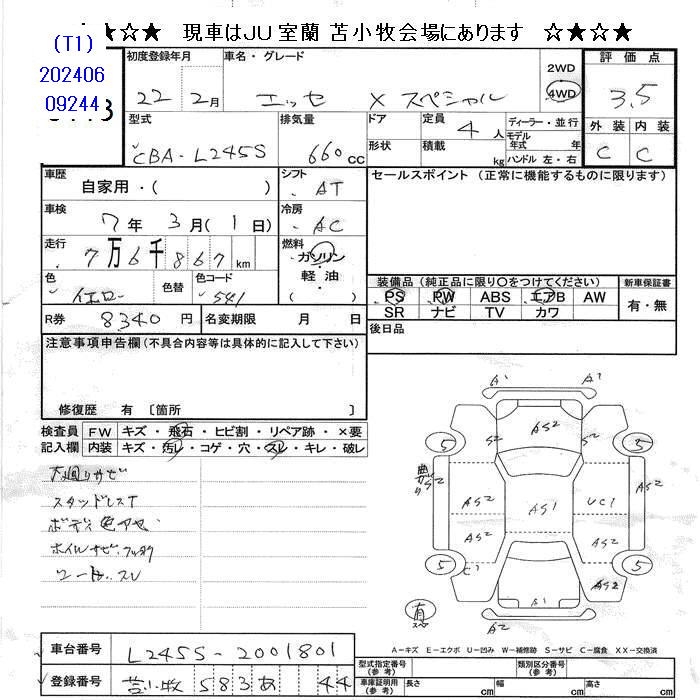 ★☆★ 現車はJU室蘭 苫小牧会場にあります ☆★☆★
(T1)
202406
09244
初度登録年月 車名・グレード 2WD 4WD 評価点
22年 2月 エッセ X スペシャル 3.5
型式 排気量 ドア 定員 4人 ディーラー・並行 外装 内装
モデル年式 年式
CBA-L245S 660cc 形状 積載 kg ハンドル 左・右 C C
車歴 シフト セールスポイント (正常に機能するものに限ります)
自家用・( ) AT
車検 冷房
7年 3月(1日) AC
走行 燃料
7万6千867km ガソリン
色 色替 色コード 軽・油 装備品 (純正品に限り○をつけてください) 新車保証書
イエロー 541 ( ) PS PW ABS エアB AW 有・無
SR ナビ TV カワ
R券 8340円 名変期限 月 日 後日品
注意事項申告欄(不具合内容等は具体的に記入して下さい)
修復歴 有 〔箇所 〕
検査員 FW キズ・飛石・ヒビ割・リペア跡・×要
記入欄 内装 キズ・汚レ・コゲ・穴・スレ・キレ・破レ
下廻りサビ
スタッドレスT
ボディ色アセ
シート スレ
A1 A1
AS2
S2 S2
5 5
AS2 AS2 AS2
AS1 UC1
AS2 AS2
5 5
AS2
A2
有
車台番号 L245S-2001801
登録番号 苫小牧 583 あ 44
A-キズ E-エクボ U-凹み W-補修跡 S-サビ C-腐食 XX-交換済
型式指定番号(参考) 類別区分番号(参考)
車庫証明用(参考) 長さ cm 幅 cm 高さ cm